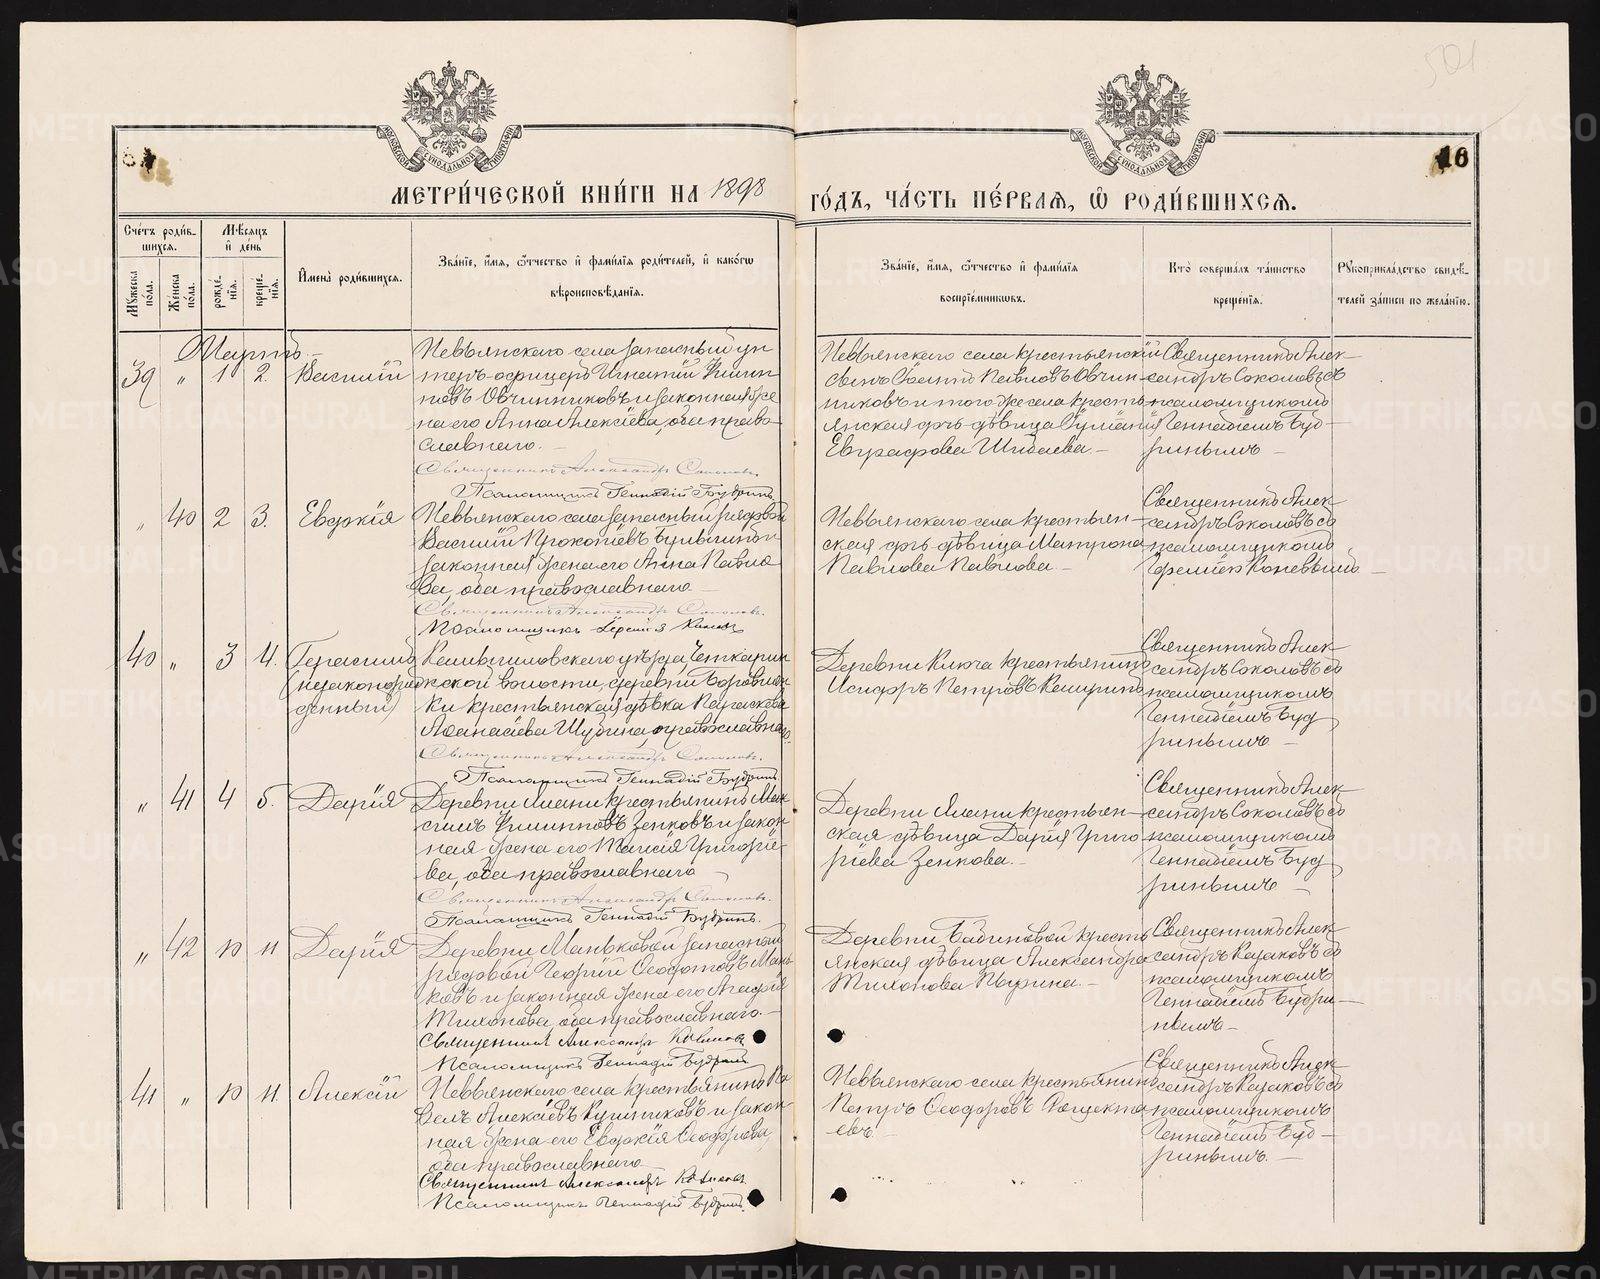 501
16
МОСКОВСКОЙ СѴНОДАЛЬНОЙ ТИПОГРАФІИ
МОСКОВСКОЙ СѴНОДАЛЬНОЙ ТИПОГРАФІИ
МЕТРИ́ЧЕСКОЙ КНИ́ГИ НА 1898
ГО́ДЪ, ЧА́СТЬ ПЕ́РВАѦ, Ѡ҆ РОДИ́ВШИХСѦ.
Сче́тъ роди́в-
шихсѧ.
Мѣ́сѧцъ
и҆ де́нь
Мꙋ́жеска по́ла.
Же́нска по́ла.
рожде́-нїѧ.
креще́-нїѧ.
И҆мена̀ роди́вшихсѧ.
Зва́нїе, и҆́мѧ, ѻ҆́тчество и҆ фами́лїѧ роди́телей, и҆ како́гѡ
вѣроисповѣ́данїѧ.
Зва́нїе, и҆́мѧ, ѻ҆́тчество и҆ фами́лїѧ
воспрїе́мникѡвъ.
Кто̀ соверша́лъ та́инство
креще́нїѧ.
Рꙋкоприкла́дство свидѣ́-
телей за́писи по жела́нїю.
Мартъ.
39 " 1 2. Василій
Невьянскаго села запасный ун
теръ-офицеръ Игнатій Филип
повъ Овчинниковъ и законная же
на его Анна Алексіева, оба право-
славнаго.
Священникъ Александръ Соколовъ.
Псаломщикъ Геннадій Будринъ
Невьянскаго села крестьянскій
сынъ Іоаннъ Павловъ Овчин-
никовъ и того же села кресть-
янская дѣвица
Евграфова Шибаева.
Священникъ Алек-
сандръ Соколовъ съ
псаломщикомъ
Геннадіемъ Буд-
ринымъ
" 40 2 3. Евдокія
Невьянскаго села запасный рядовой
Василій Прокопіевъ и
законная жена его Анна Павло
ва, оба православнаго
Священникъ Александръ Соколовъ.
Псаломщикъ
Невьянскаго села крестьян-
ская дѣвица Матрона
Павлова Павлова.
Священникъ Алек-
сандръ Соколовъ съ
псаломщикомъ
40 " 3 4. Герасимъ
(незаконорож
денный)
Камышловскаго уѣзда, Четкарин
ской волости, деревни Боровлян
ки крестьянская дѣвка Параскева
Аѳанасіева Шубина, православнаго.
Священникъ Александръ Соколовъ.
Псаломщикъ Геннадій Будринъ
Деревни Ключа крестьянинъ
Петровъ Кашринъ
Священникъ Алек-
сандръ Соколовъ съ
псаломщикомъ
Геннадіемъ Буд
ринымъ
" 41 4 5. Дарія
Деревни Ялани крестьянинъ Мак
симъ Филипповъ Зенковъ и закон
ная жена его Таисія Григоріе
ва, оба православнаго
Священникъ Александръ Соколовъ.
Псаломщикъ Геннадій Будринъ.
Деревни Ялани крестьян-
ская дѣвица Дарія Григо
ріева Зенкова.
Священникъ Алек-
сандръ Соколовъ съ
псаломщикомъ
Геннадіемъ Буд
ринымъ
" 42 10 11 Дарія
Деревни Маньковой запасный
рядовой Георгій Ѳеодотовъ Мань
ковъ и законная жена его Агафія
Тихонова, оба православнаго.
Священникъ Александръ
Псаломщикъ Геннадій Будринъ
Деревни Бабиновой кресть
янская дѣвица Александра
Тихонова
Священникъ Алек-
сандръ Казаковъ съ
псаломщикомъ
Геннадіемъ Будри-
нымъ
41 " 10 11 Алексій
Невьянскаго села крестьянинъ Па
велъ Алексіевъ и закон-
ная жена его Евдокія Ѳеодорова,
оба православнаго
Священникъ Александръ
Псаломщикъ Геннадій Будринъ
Невьянскаго села крестьянинъ
Петръ Ѳеодоровъ
евъ
Священникъ Алек-
сандръ Казаковъ съ
псаломщикомъ
Геннадіемъ Буд-
ринымъ.
METRIKI.GASO-URAL.RU